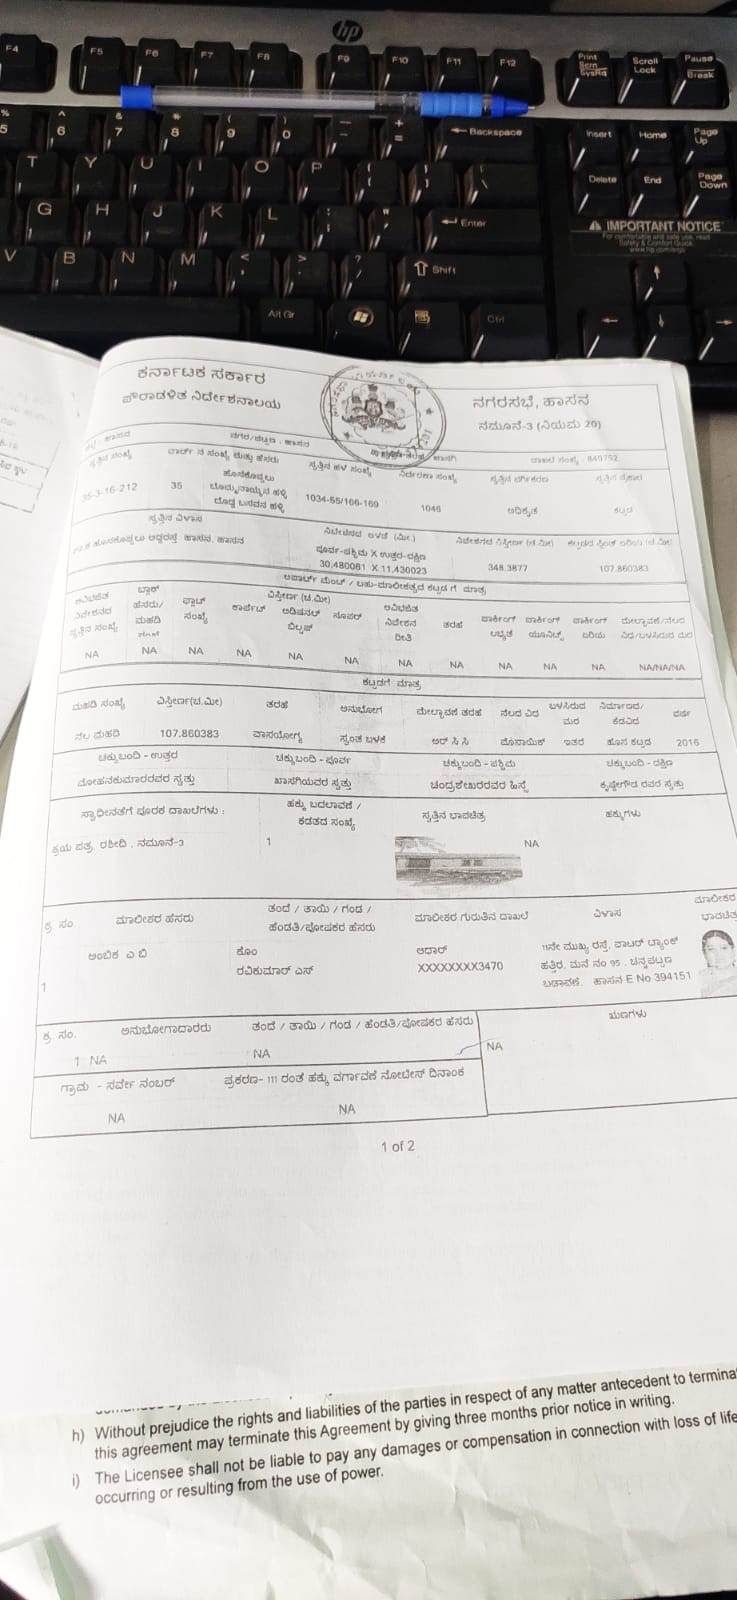 hp
F4 F5 F6 F7 F8 F9 F10 F11 F12 Print Scrn SysRq Scroll Lock Pause Break
% 5 ^ 6 & 7 * 8 ( 9 ) 0 + = Backspace Insert Home Page Up
T Y U I O P Delete End Page Down
G H J K L Enter
IMPORTANT NOTICE
For comfortable and safe use, read
Safety & Comfort Guide.
www.hp.com/ergo
V B N M Shift
Alt Gr Ctrl
ಕರ್ನಾಟಕ ಸರ್ಕಾರ
ಪೌರಾಡಳಿತ ನಿರ್ದೇಶನಾಲಯ
ನಗರಸಭೆ, ಹಾಸನ
ನಮೂನೆ-3 (ನಿಯಮ 20)
ಹಾಸನ ನಗರ/ಪಟ್ಟಣ : ಹಾಸನ ದಾಖಲೆ ಸಂಖ್ಯೆ 840752
ಸ್ವತ್ತಿನ ಸಂಖ್ಯೆ ವಾರ್ಡ್ ನ ಸಂಖ್ಯೆ ಮತ್ತು ಹೆಸರು ಸ್ವತ್ತಿನ ಹಳೆ ಸಂಖ್ಯೆ ನಿರ್ಧರಣಾ ಸಂಖ್ಯೆ ಸ್ವತ್ತಿನ ವರ್ಗೀಕರಣ ಸ್ವತ್ತಿನ ಪ್ರಕಾರ
35-3-16-212 35 ಹೊಸಕೊಪ್ಪಲು ಬೊಮ್ಮನಾಯ್ಕನ ಹಳ್ಳಿ ದೊಡ್ಡ ಬಸವನ ಹಳ್ಳಿ 1034-55/166-169 1046 ಅಧಿಕೃತ ಕಟ್ಟಡ
ಸ್ವತ್ತಿನ ವಿಳಾಸ ನಿವೇಶನದ ಅಳತೆ (ಮೀ.) ನಿವೇಶನದ ವಿಸ್ತೀರ್ಣ (ಚ.ಮೀ) ಕಟ್ಟಡದ ಪ್ಲಿಂತ್ ಏರಿಯಾ (ಚ.ಮೀ)
ಹೊಸಕೊಪ್ಪಲು ಅಡ್ಡರಸ್ತೆ ಹಾಸನ, ಹಾಸನ ಪೂರ್ವ-ಪಶ್ಚಿಮ X ಉತ್ತರ-ದಕ್ಷಿಣ
30.480061 X 11.430023 348.3877 107.860383
ಅಪಾರ್ಟ್ ಮೆಂಟ್ / ಬಹು-ಮಾಲೀಕತ್ವದ ಕಟ್ಟಡ ಗೆ ಮಾತ್ರ
ಅವಿಭಜಿತ ನಿವೇಶನದ ಸ್ವತ್ತಿನ ಸಂಖ್ಯೆ ಬ್ಲಾಕ್ ಹೆಸರು/ ಮಹಡಿ ಸಂಖ್ಯೆ ಫ್ಲಾಟ್ ಸಂಖ್ಯೆ ವಿಸ್ತೀರ್ಣ (ಚ.ಮೀ) ಕಾರ್ಪೆಟ್ ಅಡಿಷನಲ್ ಬಿಲ್ಟಪ್ ಸೂಪರ್ ಅವಿಭಜಿತ ನಿವೇಶನ ರೀತಿ ತರಹೆ ಪಾರ್ಕಿಂಗ್ ಲಭ್ಯತೆ ಪಾರ್ಕಿಂಗ್ ಯೂನಿಟ್ಸ್ ಪಾರ್ಕಿಂಗ್ ಏರಿಯ ಮೇಲ್ಚಾವಣಿ/ನೆಲದ ವಿಧ/ಬಳಸಿರುವ ಮರ
NA NA NA NA NA NA NA NA NA NA NA NA/NA/NA
ಕಟ್ಟಡಗೆ ಮಾತ್ರ
ಮಹಡಿ ಸಂಖ್ಯೆ ವಿಸ್ತೀರ್ಣ(ಚ.ಮೀ) ತರಹೆ ಅನುಭೋಗ ಮೇಲ್ಚಾವಣಿ ತರಹೆ ನೆಲದ ವಿಧ ಬಳಸಿರುವ ಮರ ನಿರ್ಮಾಣದ/ ಕೆಡವಿದ ವರ್ಷ
ನೆಲ ಮಹಡಿ 107.860383 ವಾಸಯೋಗ್ಯ ಸ್ವಂತ ಬಳಕೆ ಆರ್ ಸಿ ಸಿ ಮೊಸಾಯಿಕ್ ಇತರೆ ಹೊಸ ಕಟ್ಟಡ 2016
ಚಕ್ಕುಬಂದಿ - ಉತ್ತರ ಚಕ್ಕುಬಂದಿ - ಪೂರ್ವ ಚಕ್ಕುಬಂದಿ - ಪಶ್ಚಿಮ ಚಕ್ಕುಬಂದಿ - ದಕ್ಷಿಣ
ಮೋಹನಕುಮಾರರವರ ಸ್ವತ್ತು ಖಾಸಗಿಯವರ ಸ್ವತ್ತು ಚಂದ್ರಶೇಖರರವರ ಹಿಸ್ಸೆ ಕೃಷ್ಣೇಗೌಡ ರವರ ಸ್ವತ್ತು
ಸ್ವಾಧೀನತೆಗೆ ಪೂರಕ ದಾಖಲೆಗಳು : ಹಕ್ಕು ಬದಲಾವಣೆ / ಕಡತದ ಸಂಖ್ಯೆ ಸ್ವತ್ತಿನ ಭಾವಚಿತ್ರ ಹಕ್ಕುಗಳು
ಕ್ರಯ ಪತ್ರ, ರಶೀದಿ , ನಮೂನೆ-3 1 NA
ಕ್ರ. ಸಂ ಮಾಲೀಕರ ಹೆಸರು ತಂದೆ / ತಾಯಿ / ಗಂಡ / ಹೆಂಡತಿ/ಪೋಷಕರ ಹೆಸರು ಮಾಲೀಕರ ಗುರುತಿನ ದಾಖಲೆ ವಿಳಾಸ ಮಾಲೀಕರ ಭಾವಚಿತ್ರ
1 ಅಂಬಿಕ ಎ ಬಿ ಕೊಂ ರವಿಕುಮಾರ್ ಎಸ್ ಆಧಾರ್ XXXXXXXX3470 11ನೇ ಮುಖ್ಯ ರಸ್ತೆ, ವಾಟರ್ ಟ್ಯಾಂಕ್ ಹತ್ತಿರ, ಮನೆ ನಂ 95 . ಚನ್ನಪಟ್ಟಣ ಬಡಾವಣೆ. ಹಾಸನ E No 394151
ಕ್ರ. ಸಂ. ಅನುಭೋಗದಾರರು ತಂದೆ / ತಾಯಿ / ಗಂಡ / ಹೆಂಡತಿ/ಪೋಷಕರ ಹೆಸರು ಋಣಗಳು
1 NA NA NA
ಗ್ರಾಮ - ಸರ್ವೇ ನಂಬರ್ ಪ್ರಕರಣ- 111 ರಂತೆ ಹಕ್ಕು ವರ್ಗಾವಣೆ ನೋಟೀಸ್ ದಿನಾಂಕ
NA NA
1 of 2
h) Without prejudice the rights and liabilities of the parties in respect of any matter antecedent to termina
this agreement may terminate this Agreement by giving three months prior notice in writing.
i) The Licensee shall not be liable to pay any damages or compensation in connection with loss of life
occurring or resulting from the use of power.